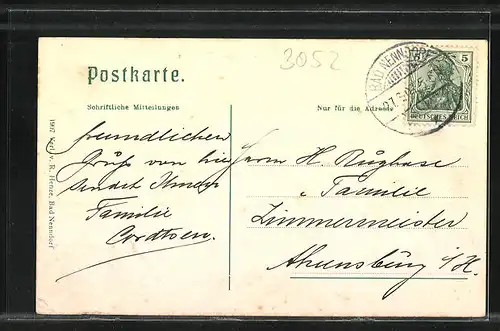 3052
Postkarte.
Schriftliche Mitteilungen
Nur für die Adresse
BAD NENNDORF
5
DEUTSCHES REICH
freundlichen
Gruß von hier
sendet Ihnen
Familie
Herrn H.
u Familie
Zimmermeister
Ahrensburg i/H.
1907 Verl. v. R. Henze, Bad Nenndorf